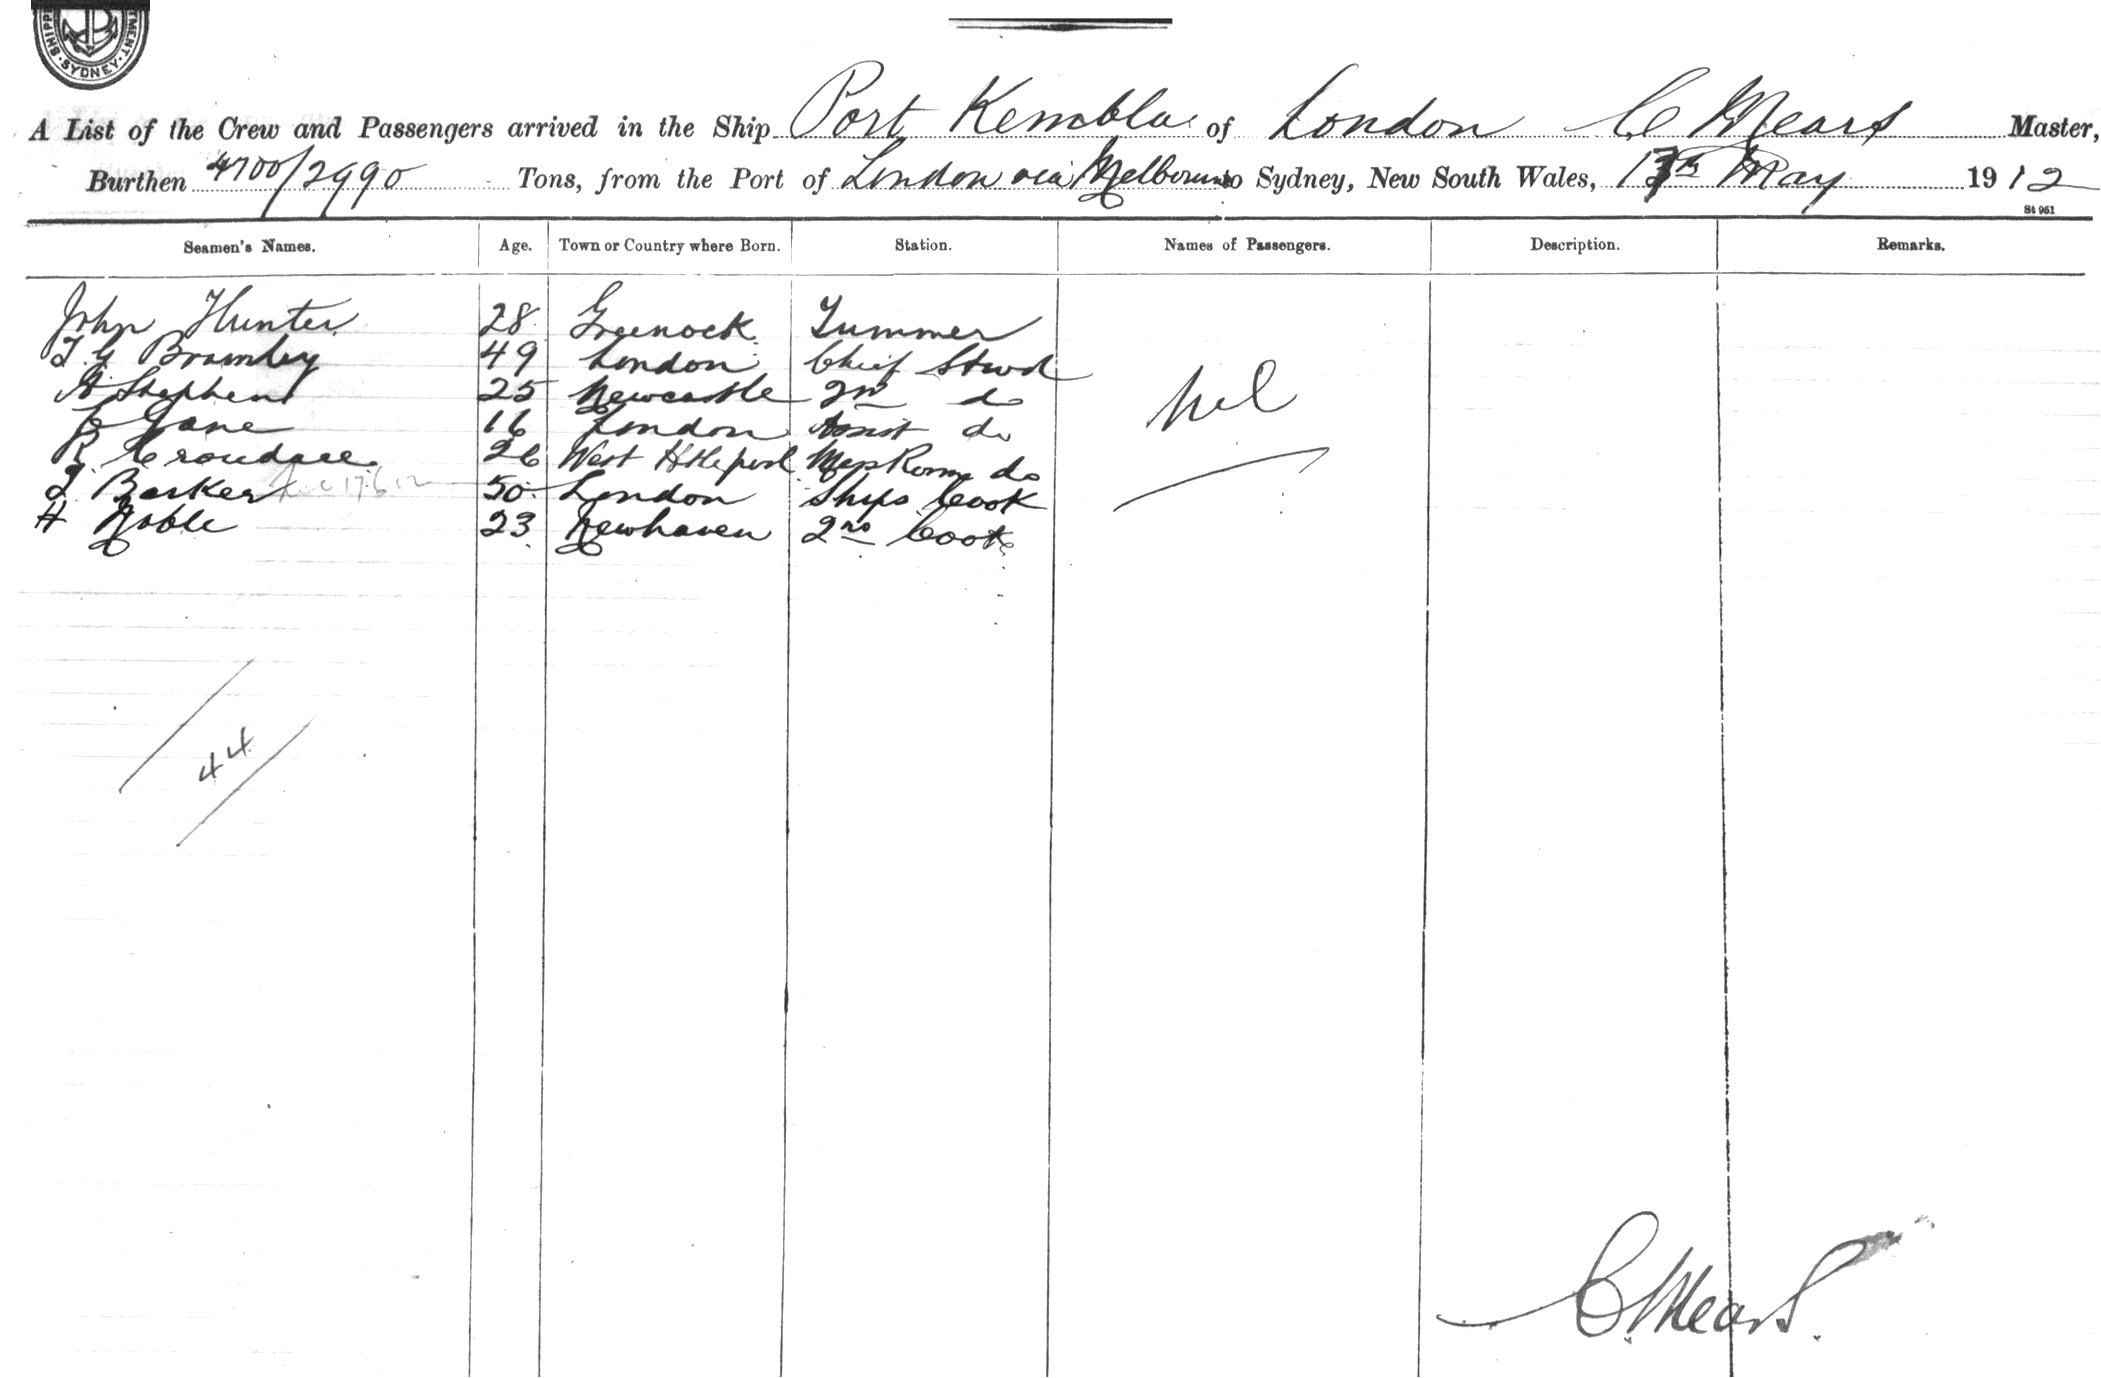 SHIPP MENT. SYDNEY.
A List of the Crew and Passengers arrived in the Ship Port Kembla of London C Mears Master,
Burthen 4700/2990 Tons, from the Port of London via Melbourne to Sydney, New South Wales, 13th May 1912
St 961
Seamen's Names. Age. Town or Country where Born. Station. Names of Passengers. Description. Remarks.
John Hunter 28 Greenock Trimmer
T G Bramley 49 London Chief Stwd
A Stephens 25 Newcastle 2nd do
E Gane 16 London Assist do
R Croudace 26 West Htlepool Mess Room do
J Barker 17.6.12 50 London Ships Cook
H Noble 23 Newhaven 2nd Cook
nil
44
C. Mears.